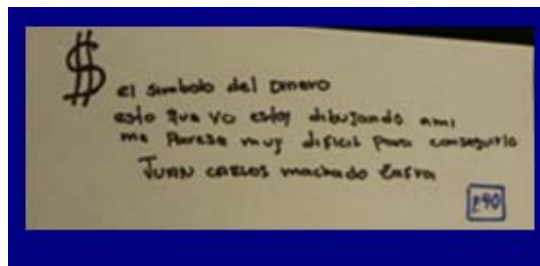 $ el simbolo del Dinero
esto que yo estoy dibujando ami
me Parese muy dificil para conseguirlo
JUAN CARLOS machado Zafra
290